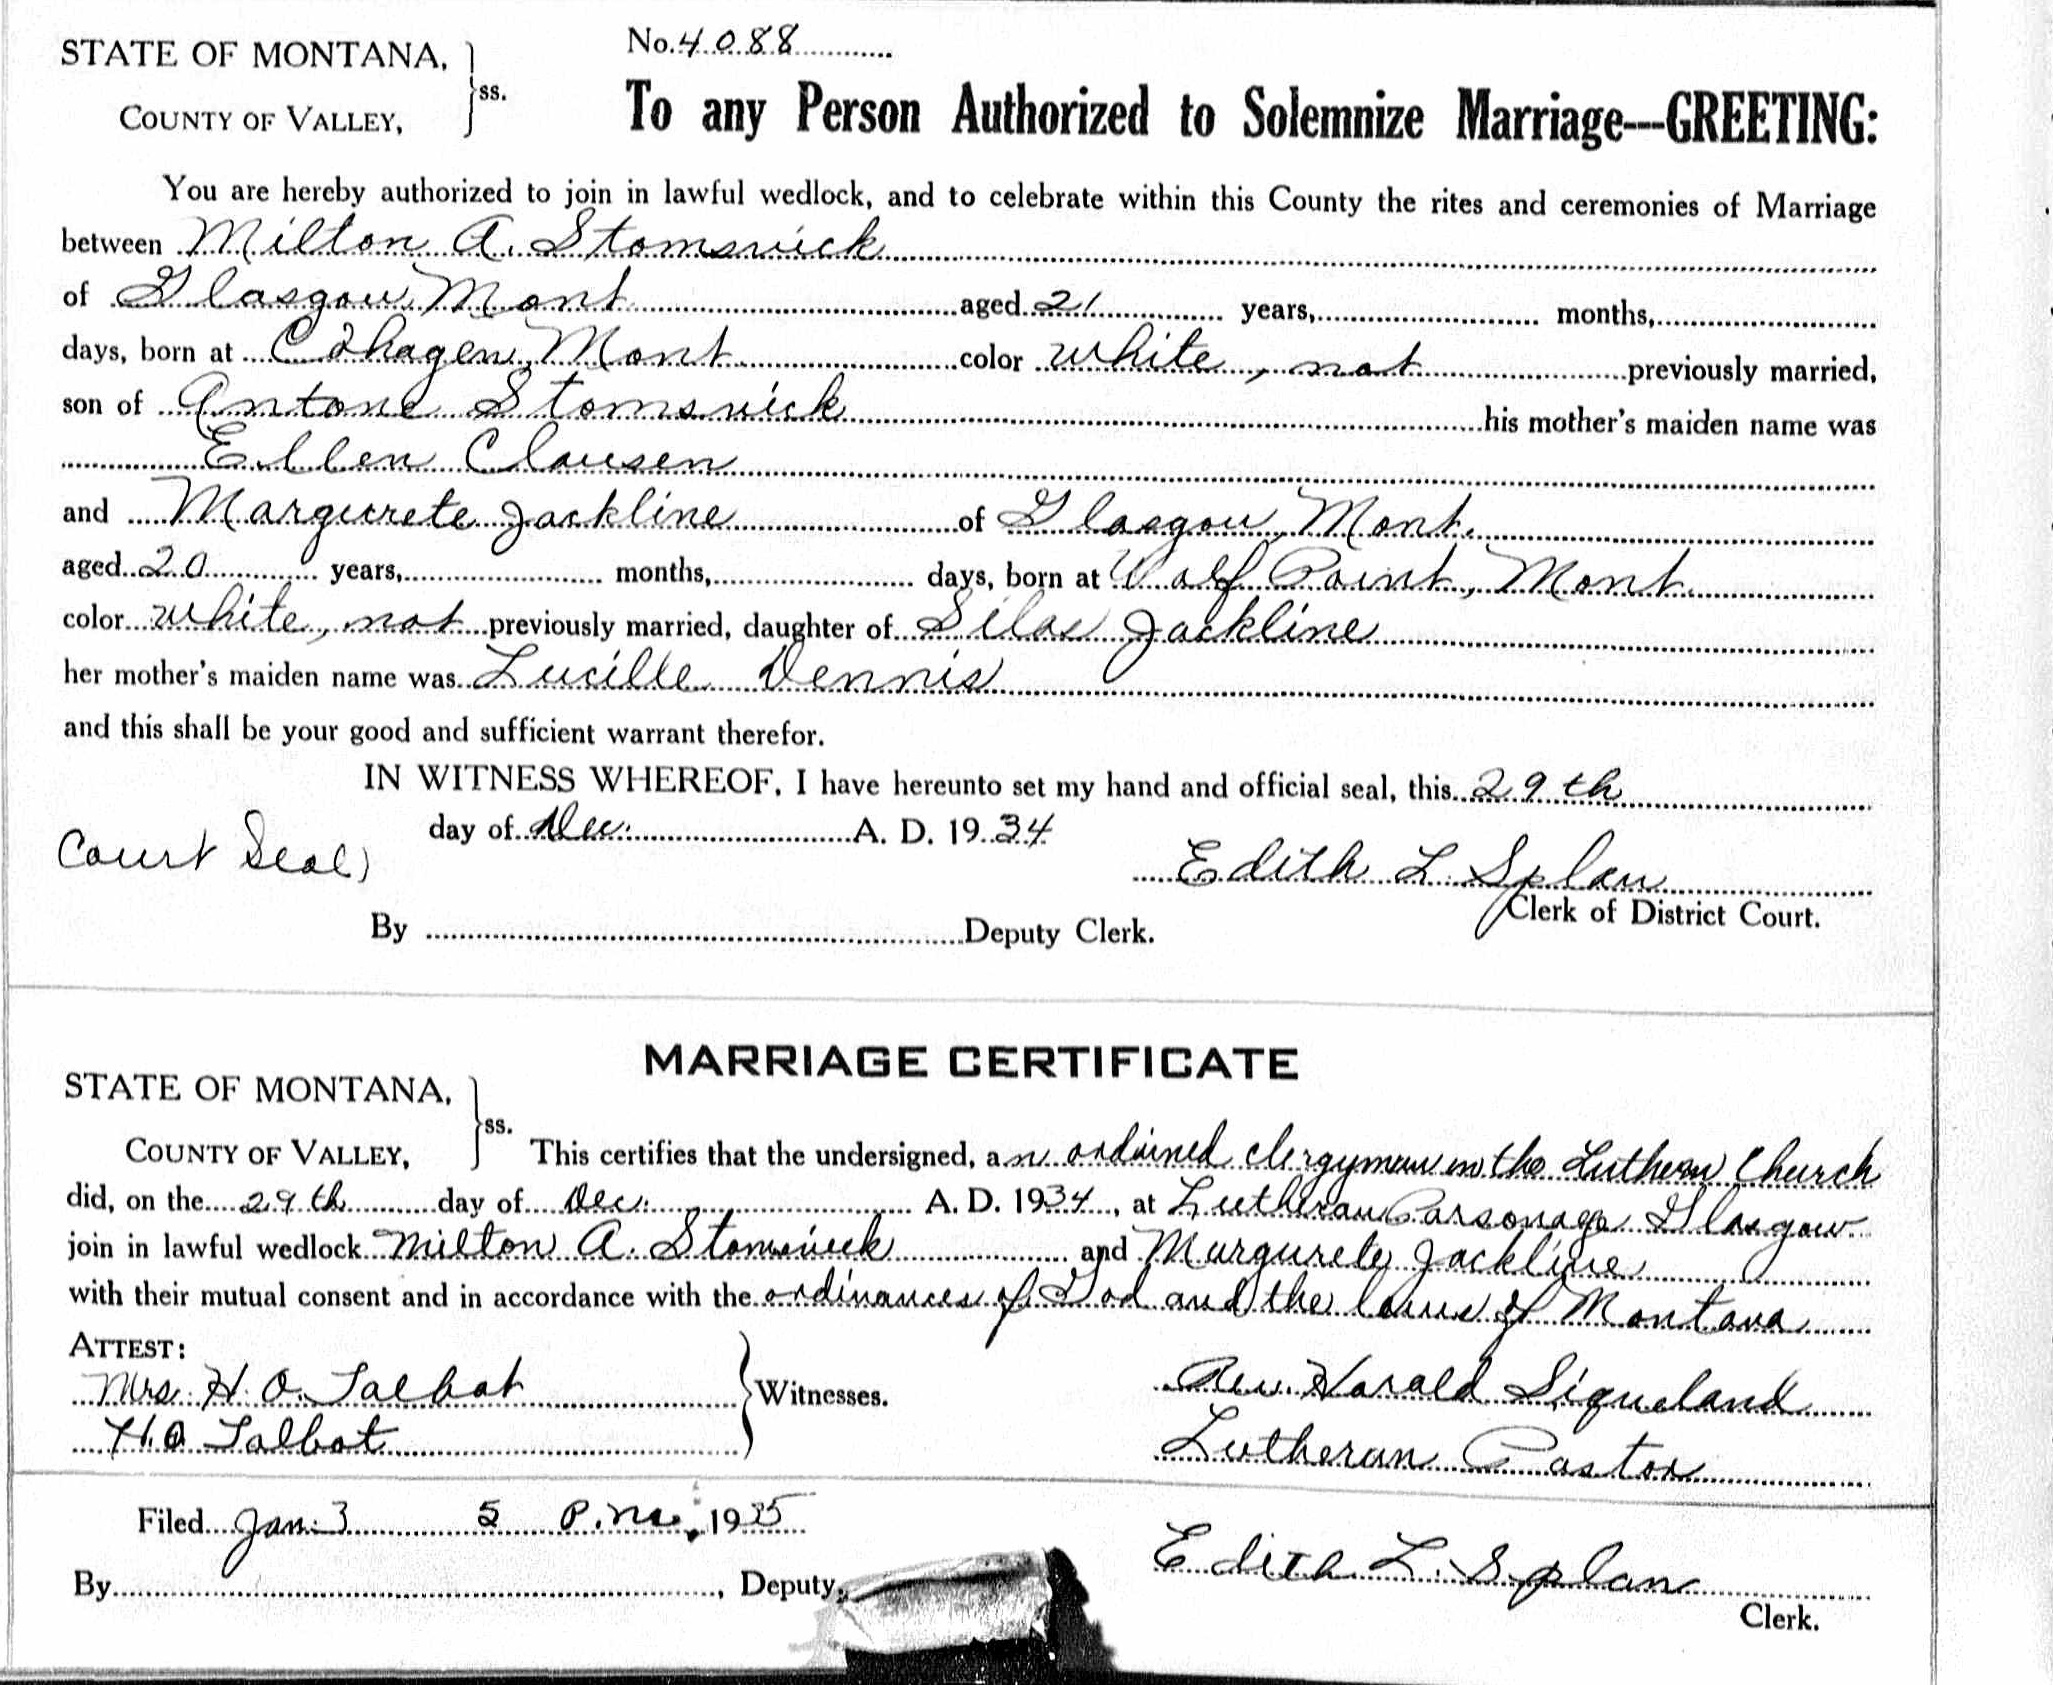 No. 4088
STATE OF MONTANA,
COUNTY OF VALLEY,
ss.
To any Person Authorized to Solemnize Marriage---GREETING:
You are hereby authorized to join in lawful wedlock, and to celebrate within this County the rites and ceremonies of Marriage
between Milton A. Stomsvick
of Glasgow, Mont aged 21 years, months,
days, born at Cohagen, Mont. color white, not previously married,
son of Antone Stomsvick his mother's maiden name was
Ellen Clausen
and Margurete Jackline of Glasgow, Mont.
aged 20 years, months, days, born at Wolf Point, Mont.
color white, not previously married, daughter of Silas Jackline
her mother's maiden name was Lucille Dennis
and this shall be your good and sufficient warrant therefor.
IN WITNESS WHEREOF, I have hereunto set my hand and official seal, this 29th
day of Dec. A. D. 1934
Court Seal)
Edith L. Splan
Clerk of District Court.
By Deputy Clerk.
MARRIAGE CERTIFICATE
STATE OF MONTANA,
COUNTY OF VALLEY,
ss.
This certifies that the undersigned, an ordained clergyman in the Lutheran Church
did, on the 29th day of Dec. A. D. 1934, at Lutheran Parsonage Glasgow
join in lawful wedlock Milton A. Stomsvick and Margurete Jackline
with their mutual consent and in accordance with the ordinances of God and the laws of Montana
ATTEST:
Mrs. H. O. Talbot
H.O. Talbot
Witnesses.
Rev. Harald Siqueland
Lutheran Pastor
Filed Jan. 3 5 P.M., 1935
By , Deputy.
Edith L. Splan
Clerk.